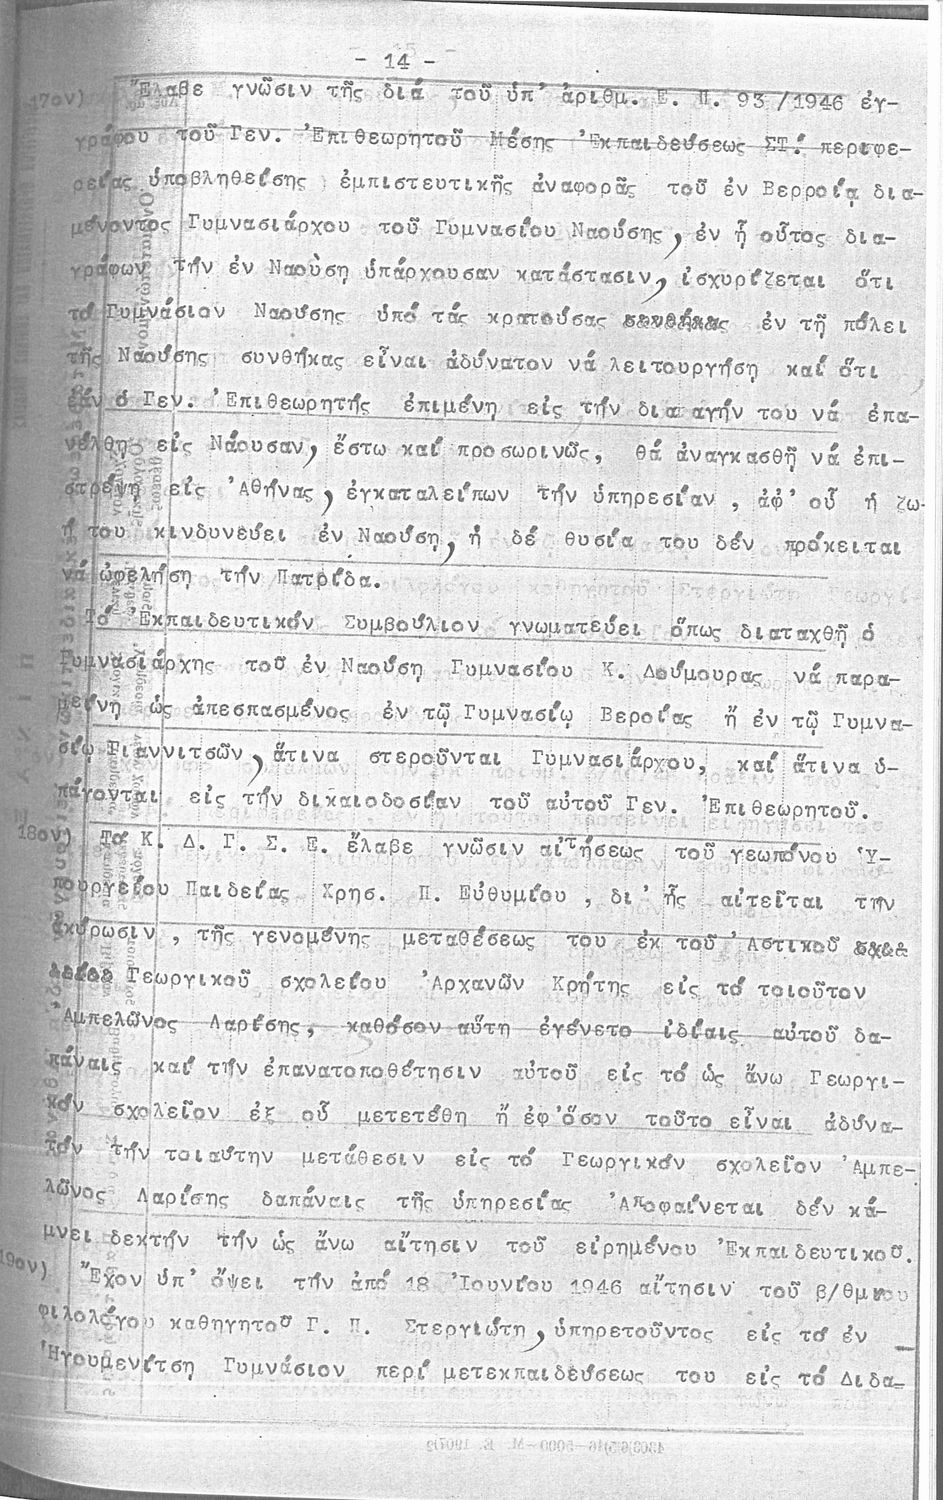 - 14 -
17ον) Ἔλαβε γνῶσιν τῆς διά τοῦ ὑπ' ἀριθμ. Ε. Π. 93/1946 ἐγ-
γράφου τοῦ Γεν. Ἐπιθεωρητοῦ Μέσης Ἐκπαιδεύσεως ΣΤ! περιφε-
ρείας ὑποβληθείσης ἐμπιστευτικῆς ἀναφορᾶς τοῦ ἐν Βερροίᾳ δια-
μένοντος Γυμνασιάρχου τοῦ Γυμνασίου Ναούσης, ἐν ᾗ οὗτος δια-
γράφων τήν ἐν Ναούσῃ ὑπάρχουσαν κατάστασιν, ἰσχυρίζεται ὅτι
τό Γυμνάσιον Ναούσης ὑπό τάς κρατούσας ἐν τῇ πόλει
τῆς Ναούσης συνθήκας εἶναι ἀδύνατον νά λειτουργήσῃ καί ὅτι
ἐάν ὁ Γεν. Ἐπιθεωρητής ἐπιμένῃ εἰς τήν διαταγήν του νά ἐπα-
νέλθῃ εἰς Νάουσαν, ἔστω καί προσωρινῶς, θά ἀναγκασθῇ νά ἐπι-
στρέψῃ εἰς Ἀθήνας, ἐγκαταλείπων τήν ὑπηρεσίαν, ἀφ' οὗ ἡ ζω-
ή του κινδυνεύει ἐν Ναούσῃ, ἡ δέ θυσία του δέν πρόκειται
νά ὠφελήσῃ τήν Πατρίδα.
Τό Ἐκπαιδευτικόν Συμβούλιον γνωματεύει ὅπως διαταχθῇ ὁ
Γυμνασιάρχης τοῦ ἐν Ναούσῃ Γυμνασίου Κ. Δούμουρας νά παρα-
μείνῃ ὡς ἀπεσπασμένος ἐν τῷ Γυμνασίῳ Βεροίας ἤ ἐν τῷ Γυμνα-
σίῳ Γιαννιτσῶν, ἅτινα στεροῦνται Γυμνασιάρχου, καί ἅτινα ὑ-
πάγονται εἰς τήν δικαιοδοσίαν τοῦ αὐτοῦ Γεν. Ἐπιθεωρητοῦ.
18ον) Τό Κ. Δ. Γ. Σ. Ε. ἔλαβε γνῶσιν αἰτήσεως τοῦ γεωπόνου Ὑ-
πουργείου Παιδείας Χρησ. Π. Εὐθυμίου, δι' ἧς αἰτεῖται τήν
ἀκύρωσιν, τῆς γενομένης μεταθέσεως του ἐκ τοῦ Ἀστικοῦ
Γεωργικοῦ σχολείου Ἀρχανῶν Κρήτης εἰς τό τοιοῦτον
Ἀμπελῶνος Λαρίσης, καθόσον αὕτη ἐγένετο ἰδίαις αὐτοῦ δα-
πάναις καί τήν ἐπανατοποθέτησιν αὐτοῦ εἰς τό ὡς ἄνω Γεωργι-
κόν σχολεῖον ἐξ οὗ μετετέθη ἤ ἐφ'ὅσον τοῦτο εἶναι ἀδύνα-
τόν τήν τοιαύτην μετάθεσιν εἰς τό Γεωργικόν σχολεῖον Ἀμπε-
λῶνος Λαρίσης δαπάναις τῆς ὑπηρεσίας Ἀποφαίνεται δέν κά-
μνει δεκτήν τήν ὡς ἄνω αἴτησιν τοῦ εἰρημένου Ἐκπαιδευτικοῦ.
19ον) Ἔχον ὑπ' ὄψει τήν ἀπό 18 Ἰουνίου 1946 αἴτησιν τοῦ β/θμιου
φιλολόγου καθηγητοῦ Γ. Π. Στεργιώτη, ὑπηρετοῦντος εἰς τό ἐν
Ἡγουμενίτσῃ Γυμνάσιον περί μετεκπαιδεύσεως του εἰς τό Διδα-